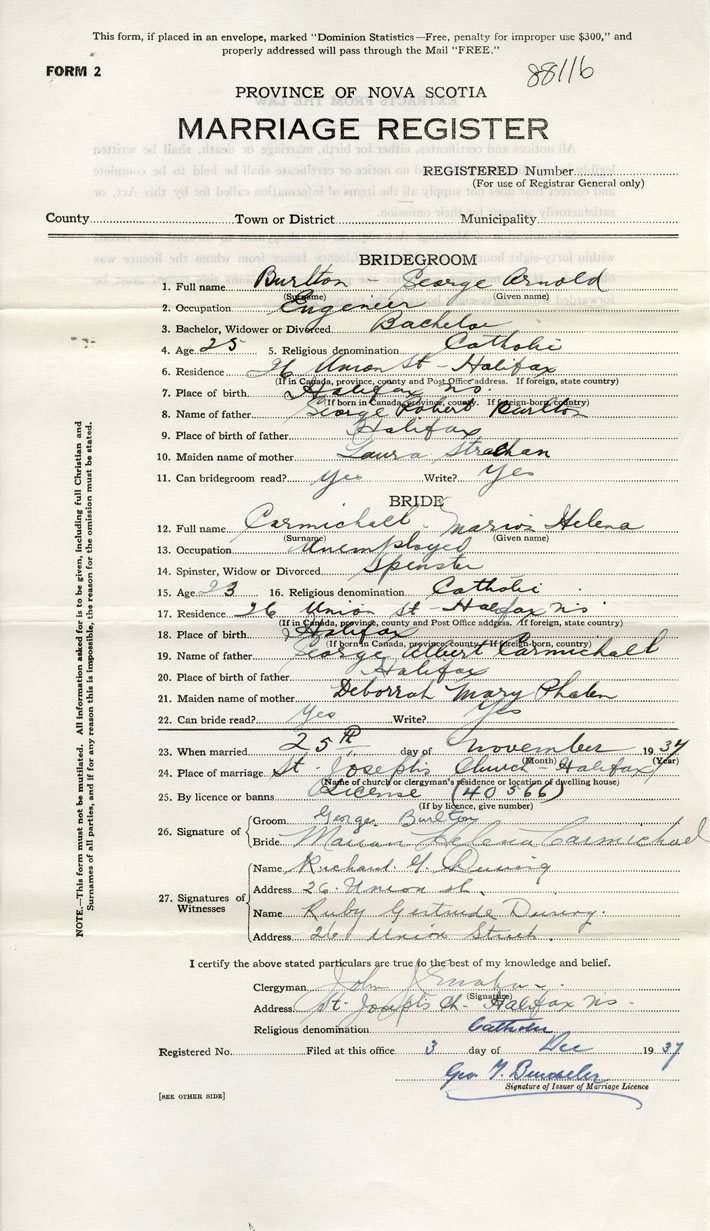 This form, if placed in an envelope, marked "Dominion Statistics—Free, penalty for improper use $300," and
properly addressed will pass through the Mail "FREE."
FORM 2
88116
PROVINCE OF NOVA SCOTIA
MARRIAGE REGISTER
REGISTERED Number
(For use of Registrar General only)
County Town or District Municipality
BRIDEGROOM
1. Full name Burlton - George Arnold
(Surname) (Given name)
2. Occupation Engineer
3. Bachelor, Widower or Divorced Bachelor
4. Age 25 5. Religious denomination Catholic
6. Residence 26 Union St - Halifax
(If in Canada, province, county and Post Office address. If foreign, state country)
7. Place of birth Halifax N.S.
(If born in Canada, province, county. If foreign-born, country)
8. Name of father George Robert Burlton
9. Place of birth of father Halifax
10. Maiden name of mother Laura Strachan
11. Can bridegroom read? yes Write? Yes
BRIDE
12. Full name Carmichael - Marion Helena
(Surname) (Given name)
13. Occupation Unemployed
14. Spinster, Widow or Divorced Spinster
15. Age 23 16. Religious denomination Catholic
17. Residence 26 Union St - Halifax N.S.
(If in Canada, province, county and Post Office address. If foreign, state country)
18. Place of birth Halifax
(If born in Canada, province, county. If foreign-born, country)
19. Name of father George Albert Carmichael
20. Place of birth of father Halifax
21. Maiden name of mother Deborrah Mary Phalen
22. Can bride read? Yes Write? Yes
23. When married 25th day of November 1937
(Month) (Year)
24. Place of marriage St. Joseph's Church - Halifax
(Name of church or clergyman's residence or location of dwelling house)
25. By licence or banns License (40566)
(If by licence, give number)
26. Signature of
Groom George Burlton
Bride Marion Helena Carmichael
27. Signatures of Witnesses
Name Richard G.
Address 26 Union St.
Name Ruby Gertrude
Address 26 Union Street.
I certify the above stated particulars are true to the best of my knowledge and belief.
Clergyman John J.
(Signature)
Address St. Joseph's Ch- Halifax N.S.
Religious denomination Catholic
Registered No. Filed at this office 3 day of Dec 1937
Geo.
Signature of Issuer of Marriage Licence
[SEE OTHER SIDE]
NOTE.—This form must not be mutilated. All information asked for is to be given, including full Christian and
Surnames of all parties, and if for any reason this is impossible, the reason for the omission must be stated.